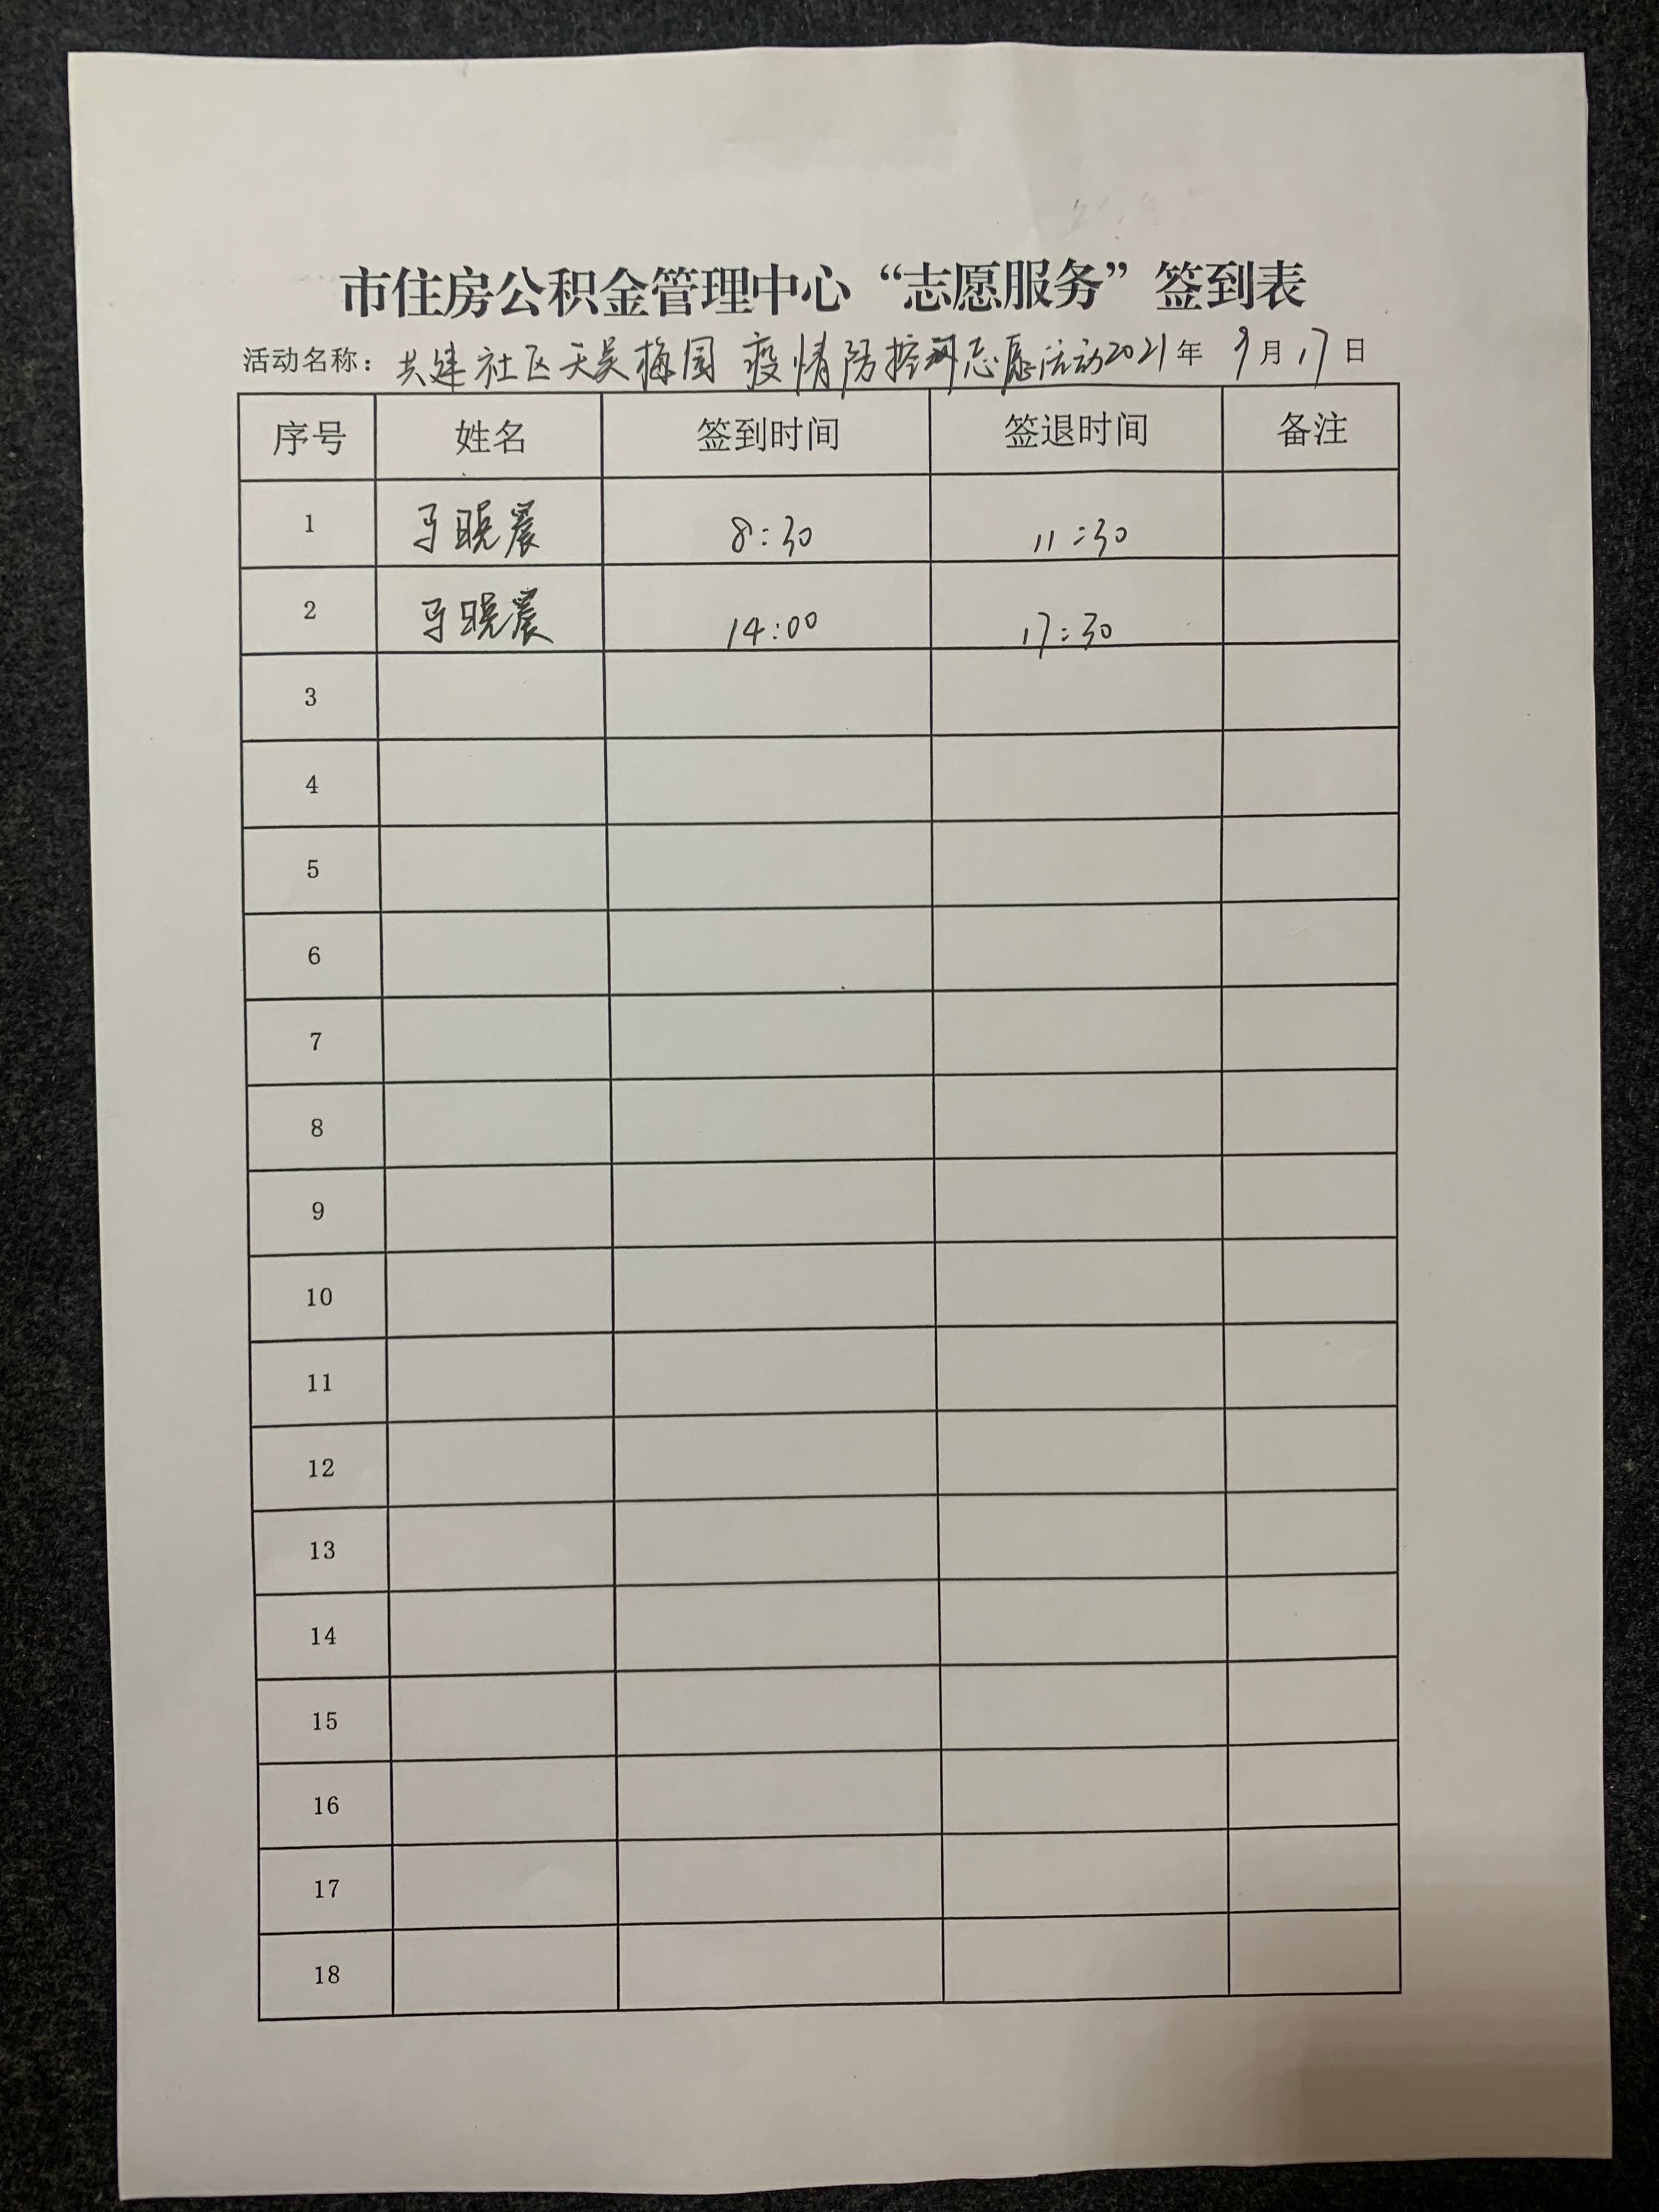 市住房公积金管理中心“志愿服务”签到表
活动名称：共建社区天昊梅园 疫情防控志愿活动2021年 9月17日
序号 姓名 签到时间 签退时间 备注
1 马晓晨 8:30 11:30
2 马晓晨 14:00 17:30
3
4
5
6
7
8
9
10
11
12
13
14
15
16
17
18